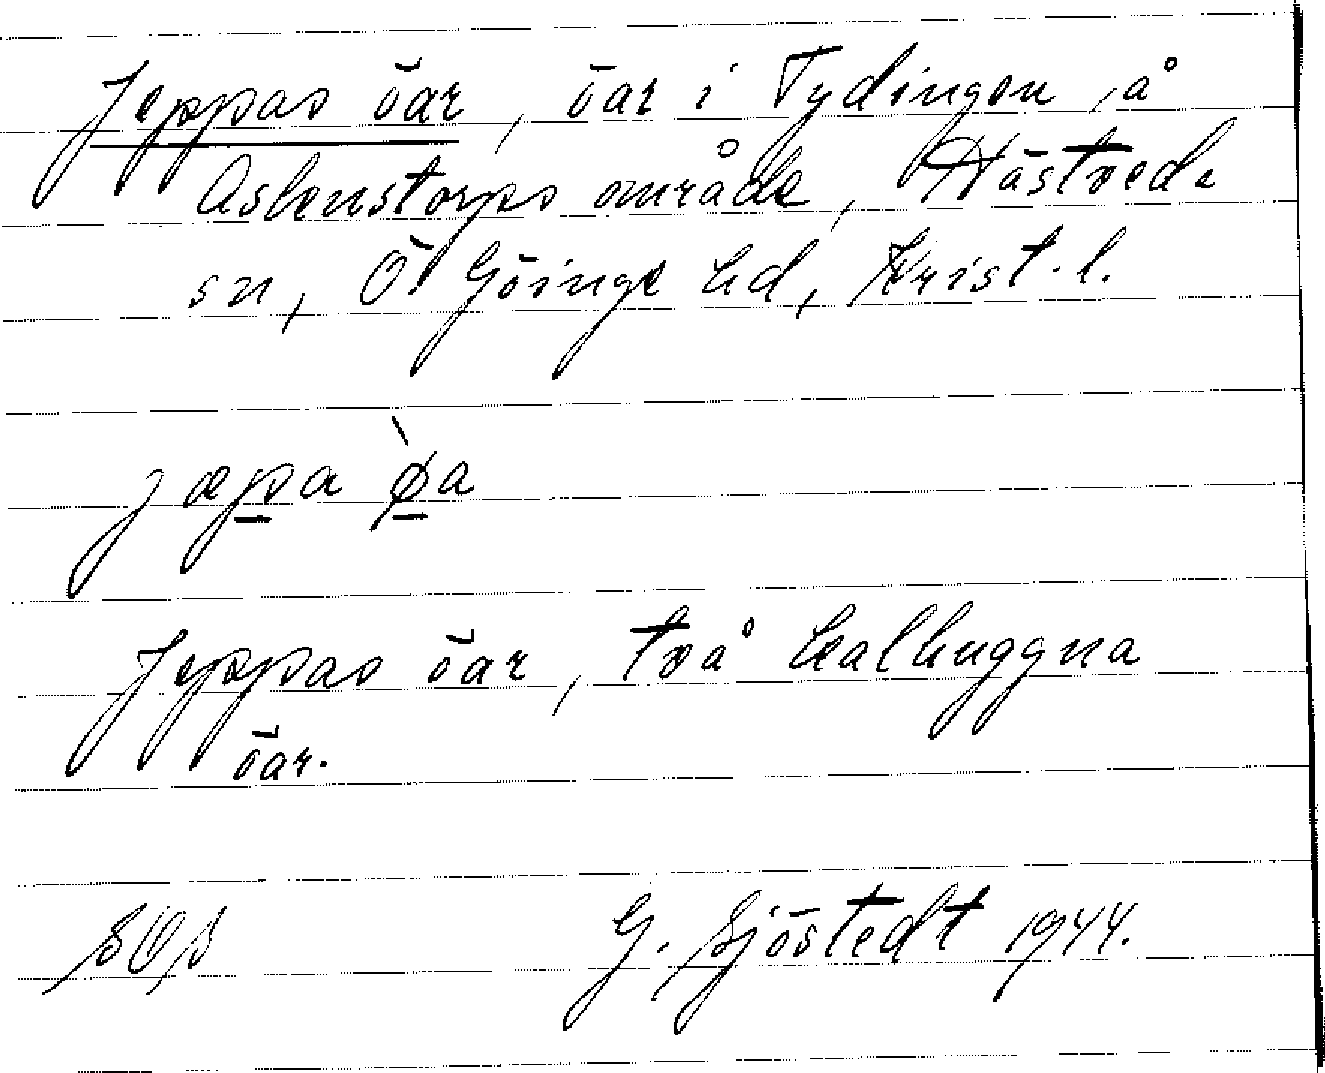 Jeppas öar, öar i Tydingen å
Aslenstorps område, Hästveda
sn, Ö. Göinge hd, Krist. l.
jæpa øa
Jeppas öar, två kalhuggna
öar.
G. Sjöstedt 1944.